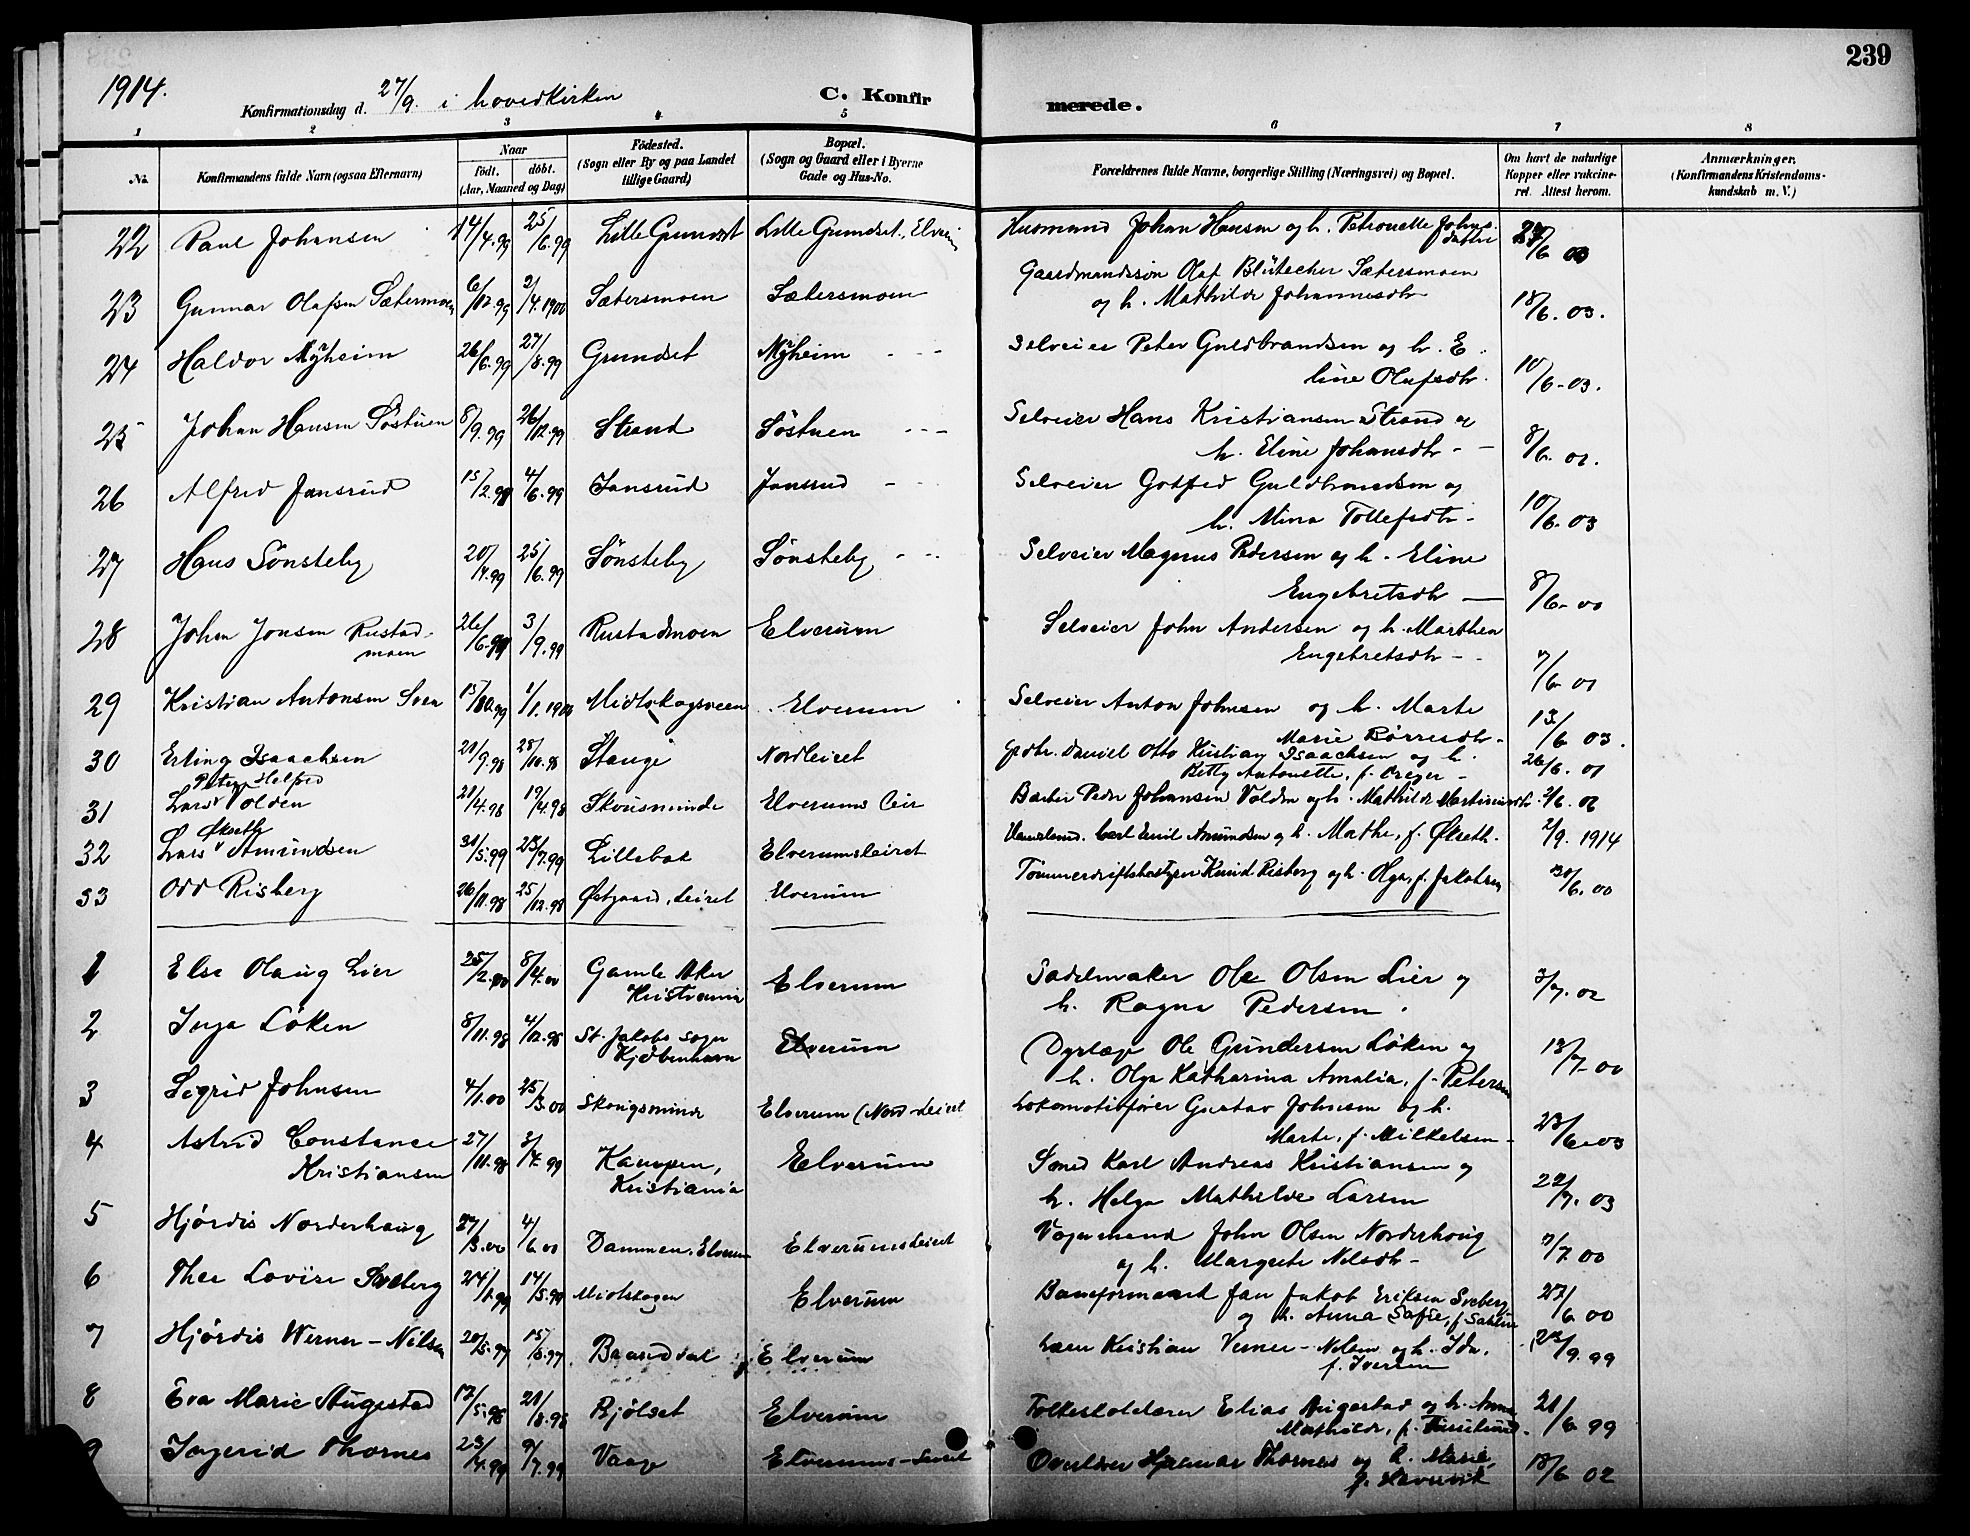 239
1914.
Konfirmationsdag d. 27/9. i hovedkirken
C. Konfirmerede.
1 2 3 4 5 6 7 8
No.
Konfirmandens fulde Navn (ogsaa Efternavn)
Naar
födt. döbt.
(Aar, Maaned og Dag)
Födested.
(Sogn eller By og paa Landet
tillige Gaard)
Bopæl.
(Sogn og Gaard eller i Byerne
Gade og Hus-No.
Forældrenes fulde Navne, borgerlige Stilling (Næringsvei) og Bopæl.
Om havt de naturlige
Kopper eller vakcine-
ret. Attest herom.
Anmærkninger.
(Konfirmandens Kristendoms-
kundskab m. V.)
22 Paul Johansen 14/4.99 25/6.99 Lille Grundset Lille Grundset, Elverum Husmand Johan Hansen og h. Petronelle Johns-
datter /6 03
23 Gunnar Olafsen Sætermoen 6/12.99 2/4.1900 Sætersmoen Sætersmoen Gaardmandssøn Olaf Blütecher Sætersmoen
og h. Mathilde Johannesdtr 18/6. 03.
24 Haldor Myheim 26/6.99 27/8.99 Grundset Myheim - - - Selveier Peter Guldbrandsen og h. E-
line Olufsdtr. 10/6-03.
25 Johan Hansen Söstuen 8/9.99 26/12.99 Strand Söstuen - - - Selveier Hans Kristiansen Strand og
h. Eline Johansdtr - - 8/6. 01.
26 Alfred Jansrud 15/2.99 4/6.99 Jansrud Jansrud - - Selveier Gotfred Guldbrandsen og
h. Mina Tollefsdtr - 10/6. 03
27 Hans Sönsteby 20/4.99 25/6.99 Sönsteby Sönsteby - - Selveier Magnus Pedersen og h. Eline
Engebretsdtr — 8/6- 00
28 Johan Jonsen Rustad-
moen 26/6.99 3/9.99 Rustadmoen Elverum Selveier John Andersen og h. Marthea
Engebretsdtr - - 7/6 01
29 Kristian Antonsen Sven 15/10.99 1/1.1900 Midtskogsveen Elverum Selveier Anton Johnsen og h. Marte
Marie Börresdtr - 13/6 03.
30 Erling Isaachsen 21/9.98 28/10.98 Stange Nordleiret Daniel Otto Kristian Isaachsen og h.
Betty Antonette, f. Dreyer - 26/6. 01
31 Peter Helfred
Lars Volden 21/4.98 19/4.98 Skousminde Elverums leir Barber Peder Johansen Volden og h. Mathilde Martinusdtr. 2/6. 02
32 Økseth
Lars Amundsen 31/5.99 23/7.99 Lillebæk Elverumsleiret Carl Emil Amundsen og h. Mathe, f. Økseth. 2/9. 1914
33 Odd Risberg 26/11.98 25/12.98 Østgaard, Leiret Elverum Tømmerdriftsbestyrer Knud Risberg og h. Olga, f. Jakobsen 30/6. 00
1 Else Olaug Lier 25/2.00 8/4.00 Gamle Aker
Kristiania Elverum Sadelmaker Ole Olsen Lier og
h. Ragna Pedersen. 3/7. 02
2 Inga Löken 8/11.98 4/12.98 St. Jakobs sogn
Kjøbenhavn Elverum Dyrlæge Ole Gundersen Löken og
h. Olga Katharina Amalia, f. Petersen 13/7-00
3 Sigrid Johnsen 4/1.00 25/3.00 Skougsminde Elverum (Nord-leiret Lokomotivfører Gustav Johnsen og h.
Marte, f. Mikkelsen - 23/6-03
4 Astrid Constance
Kristiansen 27/11.98 3/4.99 Kampen,
Kristiania Elverum Smed Karl Andreas Kristiansen og
h. Helga Mathilde Larsen 22/7. 03
5 Hjördis Norderhaug 27/3.00 4/6.00 Dammen, Elverum Elverumsleiret Vognmand John Olsen Norderhoug
og h. Margrete Nilsdtr - 3/7. 00
6 Thea Lovise Sveberg 24/1.99 14/5.99 Midtskogen Elverum Baneformand Jan Jakob Eriksen Sveberg
og h. Anna Sofie, f. 27/6 00
7 Hjördis Werner-Nilsen 20/5.97 15/8.97 Brandval Elverum Kristian Verner-Nilsen og h. Ida,
f. Iversen 23/9. 99
8 Eva Marie Augestad 17/5.98 21/8.98 Bjölset Elverum Folkeskolelærer Elias Augestad og h. Anna
Mathilde, f. 21/6 99
9 Ingerid Thornes 23/4.99 9/7.99 Vaage Elverums-Leiret Overlærer Hjalmar Thornes og h. Marie,
f. 18/6 02